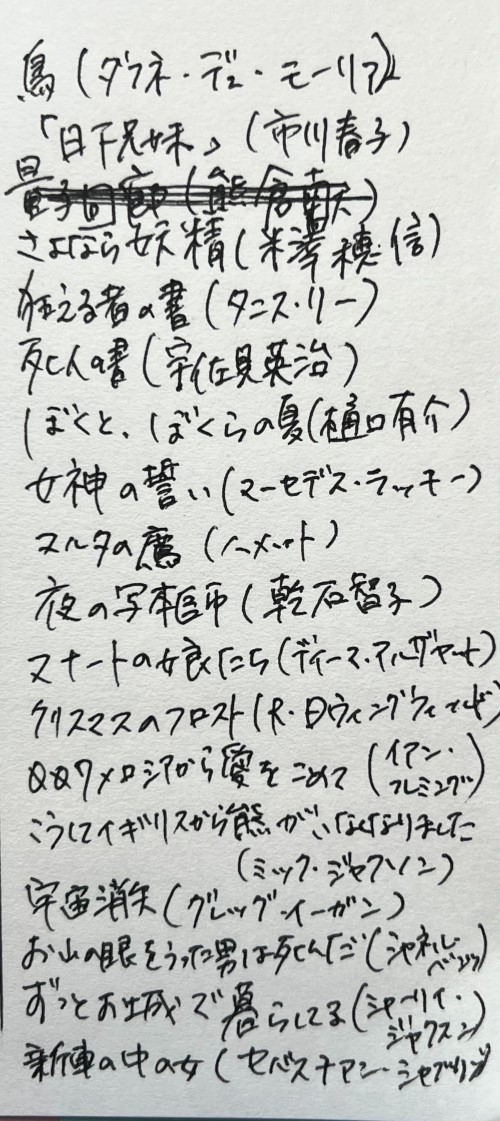 鳥(ダフネ・デュ・モーリア)
「日下兄妹」(市川春子)
量子回廊(熊倉南天)
さよなら妖精(米澤穂信)
狂える者の書(タニス・リー)
死人の書(宇佐見英治)
ぼくと、ぼくらの夏(樋口有介)
女神の誓い(マーセデス・ラッキー)
マルタの鷹(ハメット)
夜の写本師(乾石智子)
スナートの娘たち(ディーマ・アルザヤット)
クリスマスのフロスト(R・Dウィングフィールド)
007/ロシアから愛をこめて(イアン・
フレミング)
こうしてイギリスから熊がいなくなりました
(ミック・ジャクソン)
宇宙消失(グレッグ・イーガン)
お山の眼をうった男は死んだ(シャネル・
ベンツ)
ずっとお城で暮らしてる(シャーリイ・
ジャクスン)
新車の中の女(セバスチアン・ジャプリゾ)